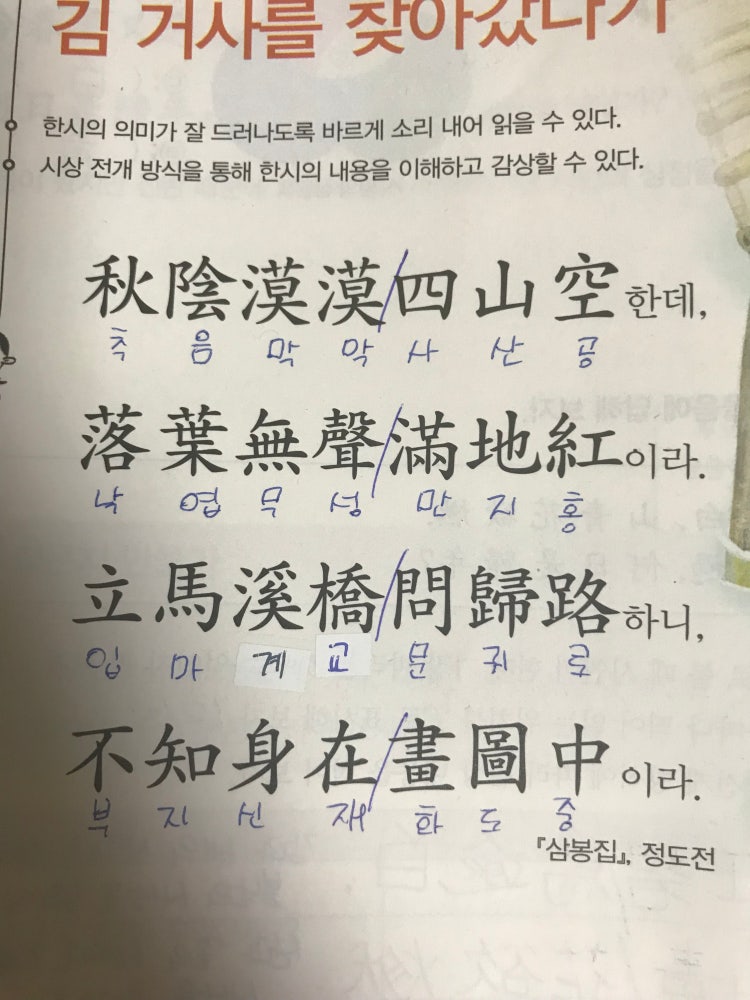 김 거사를 찾아갔다가
한시의 의미가 잘 드러나도록 바르게 소리 내어 읽을 수 있다.
시상 전개 방식을 통해 한시의 내용을 이해하고 감상할 수 있다.
秋陰漠漠/四山空한데,
추 음 막 막 사 산 공
落葉無聲/滿地紅이라.
낙 엽 무 성 만 지 홍
立馬溪橋/問歸路하니,
입 마 계 교 문 귀 로
不知身在/畫圖中이라.
부 지 신 재 화 도 중
『삼봉집』, 정도전